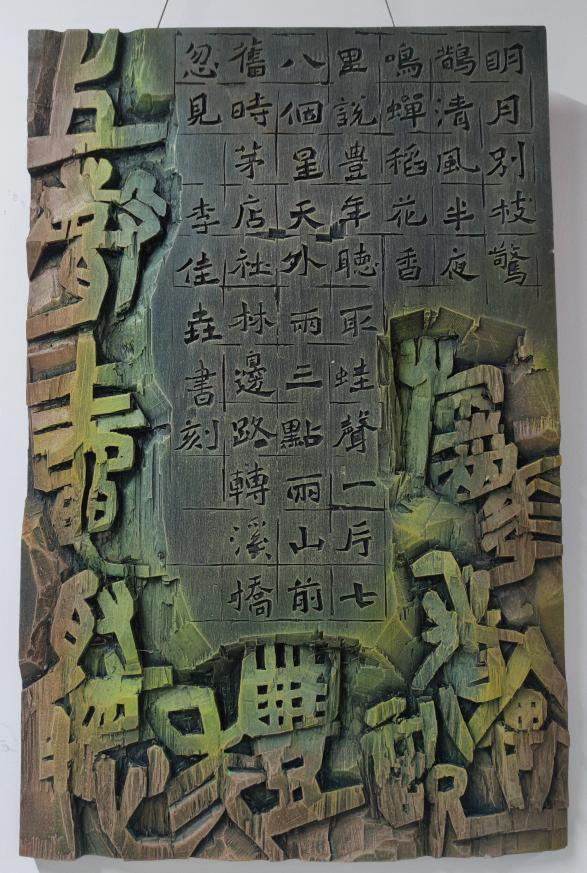 明月別枝驚
鵲清風半夜
鳴蟬稻花香
里說豐年聽取蛙聲一片七
八個星天外兩三點雨山前
舊時茅店社林邊路轉溪橋
忽見 李佳垚書刻